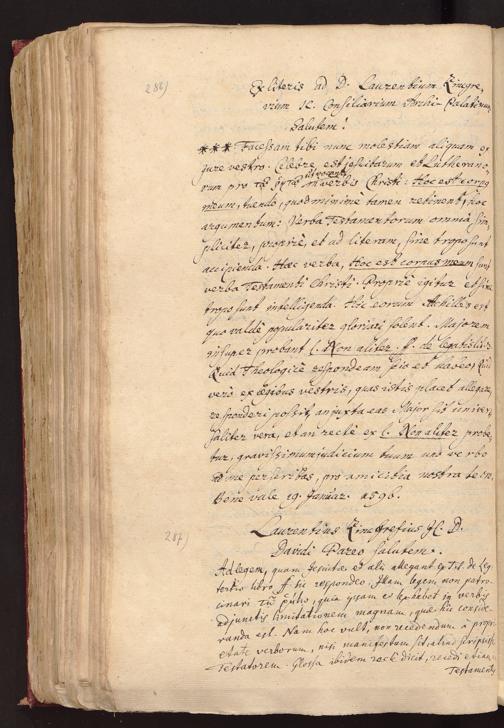 286)
Ex literis ad D. Laurentium Zincgre,
vium IC. Consiliarium Archi-Palatinum
Salutem!
*** Facessam tibi nunc molestiam aliquam ex
jure vestro. Celebre est Jesuitarum et Lutherano-
rum pro in verbis Christi: Hoc est corpus
meum, tuendo, quod minime tamen retinent, hoc
argumentum: Verba Testamentorum omnia sim
pliciter, proprie, et ad literam, sine tropo sunt
accipienda. Haec verba, Hoc est corpus meum sunt
verba Testamenti Christi. Proprie igitur et sine
tropo sunt intelligenda. Hic eorum Achilles est
quo valde populariter gloriari solent. Majorem
insuper probant l. Non aliter. ff. de legatis lib. 3.
Quid Theologice respondeam scio et habeo, Quid
vero ex legibus vestris, quas istis placet allegare,
responderi possit, an juxta eas Major sit univer
saliter vera, et an recte ex l. Non aliter probe
tur, gravissimum judicium tuum uno verbo
ad me perscribas, pro amicitia nostra te
Bene vale 19. Januar. 1596.
287)
Laurentius Zincgrefius JC. D.
Davidi Pareo Salutem.
Ad legem, quam Jesuitae et alii allegant ex Tit. de Leg
tertio libro ff. sic respondeo. Illam legem non patro
cinari quia ipsam ex habet in verbis
adjunctis limitationem magnam, quae hic conside
randa est. Nam hoc vult, non recedendum a propri
etate verborum, nisi manifestum sit, aliud sensisse
Testatorem. Glossa ibidem recte dicit, recedi etiam
Testamento